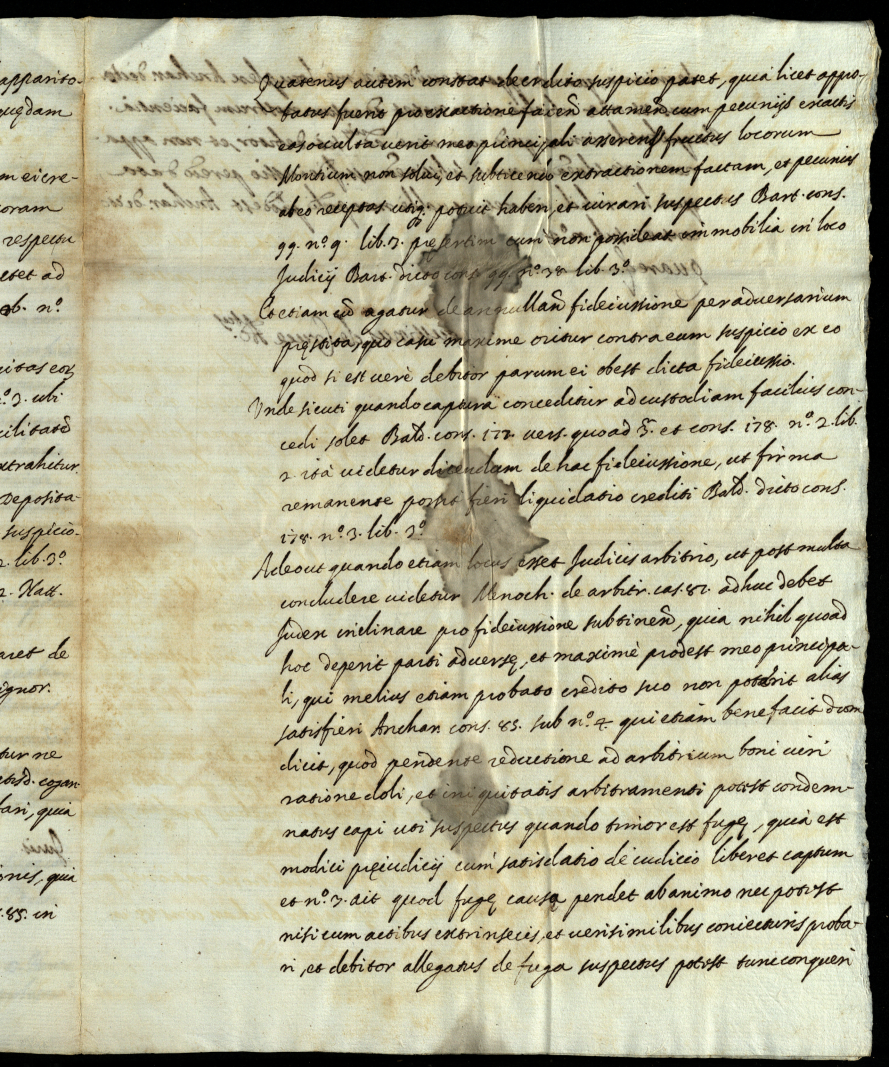 apparito-
m ei cre-
coram
respectu
etet ad
eb. n.º
n.º 3. ubi
extrahitur
Deposita-
suspicio-
2. lib. 3.º
2. Natt.
aret de
ignor.
tur ne
fari, quia
onis, quia
.85. in
Quatenus autem constat de credito suspicio patet, quia licet appro-
batus fuerit pro exactione faciend attamen cum pecunijs exactis
eas occultaverit meo principali asserens fructus locorum
Montium non solui, et subticendo extractionem factam, et pecunias
ab eo receptas utiq. potuit haberi, et iurari suspectus Bart. cons.
99. n.º 9. lib. 3. presertim cum non possideat immobilia in loco
Judicij Bart. dicto cons. 99. n.º 38. lib. 3.º
Et etiam cum agatur de annulland fideiussione per adversarium
prestita, quo casu maxime oritur contra eum suspicio ex eo
quod si est verè debitor parum ei obest dicta fideiussio.
Unde sicuti quando captura conceditur ad custodiam facilius con-
cedi solet Bald. cons. 177. vers. quoad 3. et cons. 178. n.º 2. lib.
2 ità videtur dicendum de hac fideiussione, ut firma
remanente possit fieri liquidatio crediti Bald. dicto cons.
178. n.º 3. lib. 3.º
Adeout quando etiam locus esset Judicis arbitrio, ut post multa
concludere videtur Menoch. de arbitr. cas. 81. adhuc debet
Judex inclinare pro fideiussione subtinend, quia nihil quoad
hoc deperit parti adverse, et maximè prodest meo principa-
li, qui melius etiam probato credito suo non poterit alias
satisfieri Anchar. cons. 85. sub n.º 4. qui etiam benefacit dum
dicit, quod pendente reductione ad arbitrium boni viri
ratione doli, et iniquitatis arbitramenti potest condem-
natus capi uti suspectus quando timor est fuge, quia est
modici preiudicij cum satisdatio de iudicio liberet captum
et n.º 7. ait quod fuge causa pendet ab animo nec potest
nisi cum actibus extrinsecis, et verisimilibus coniecturis proba-
ri, et debitor allegatus de fuga suspectus potest tunc conqueri